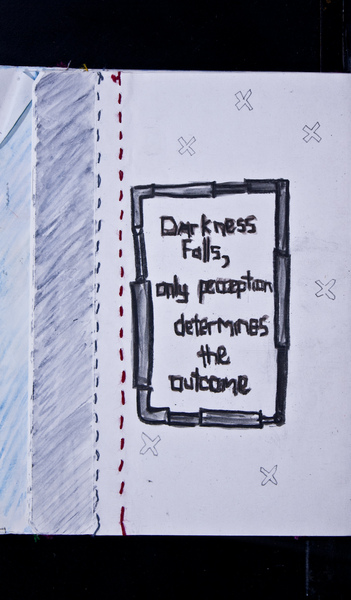 Darkness
Falls,
only perception
determines
the
outcome